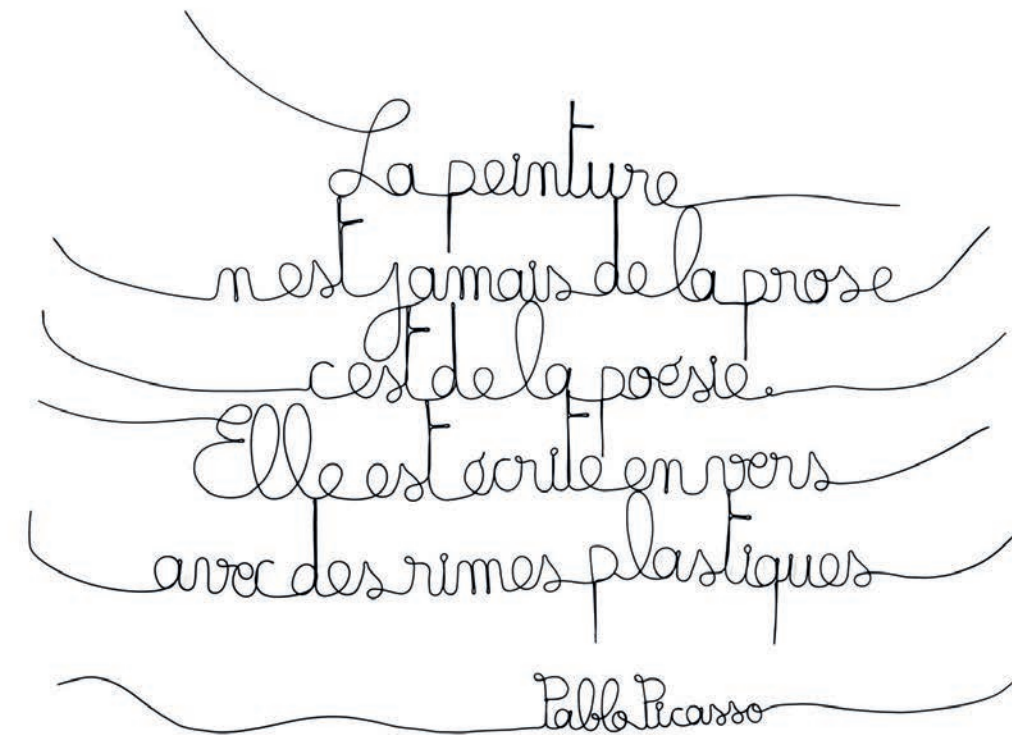 La peinture
n'est jamais de la prose
c'est de la poésie.
Elle est écrite en vers
avec des rimes plastiques
Pablo Picasso